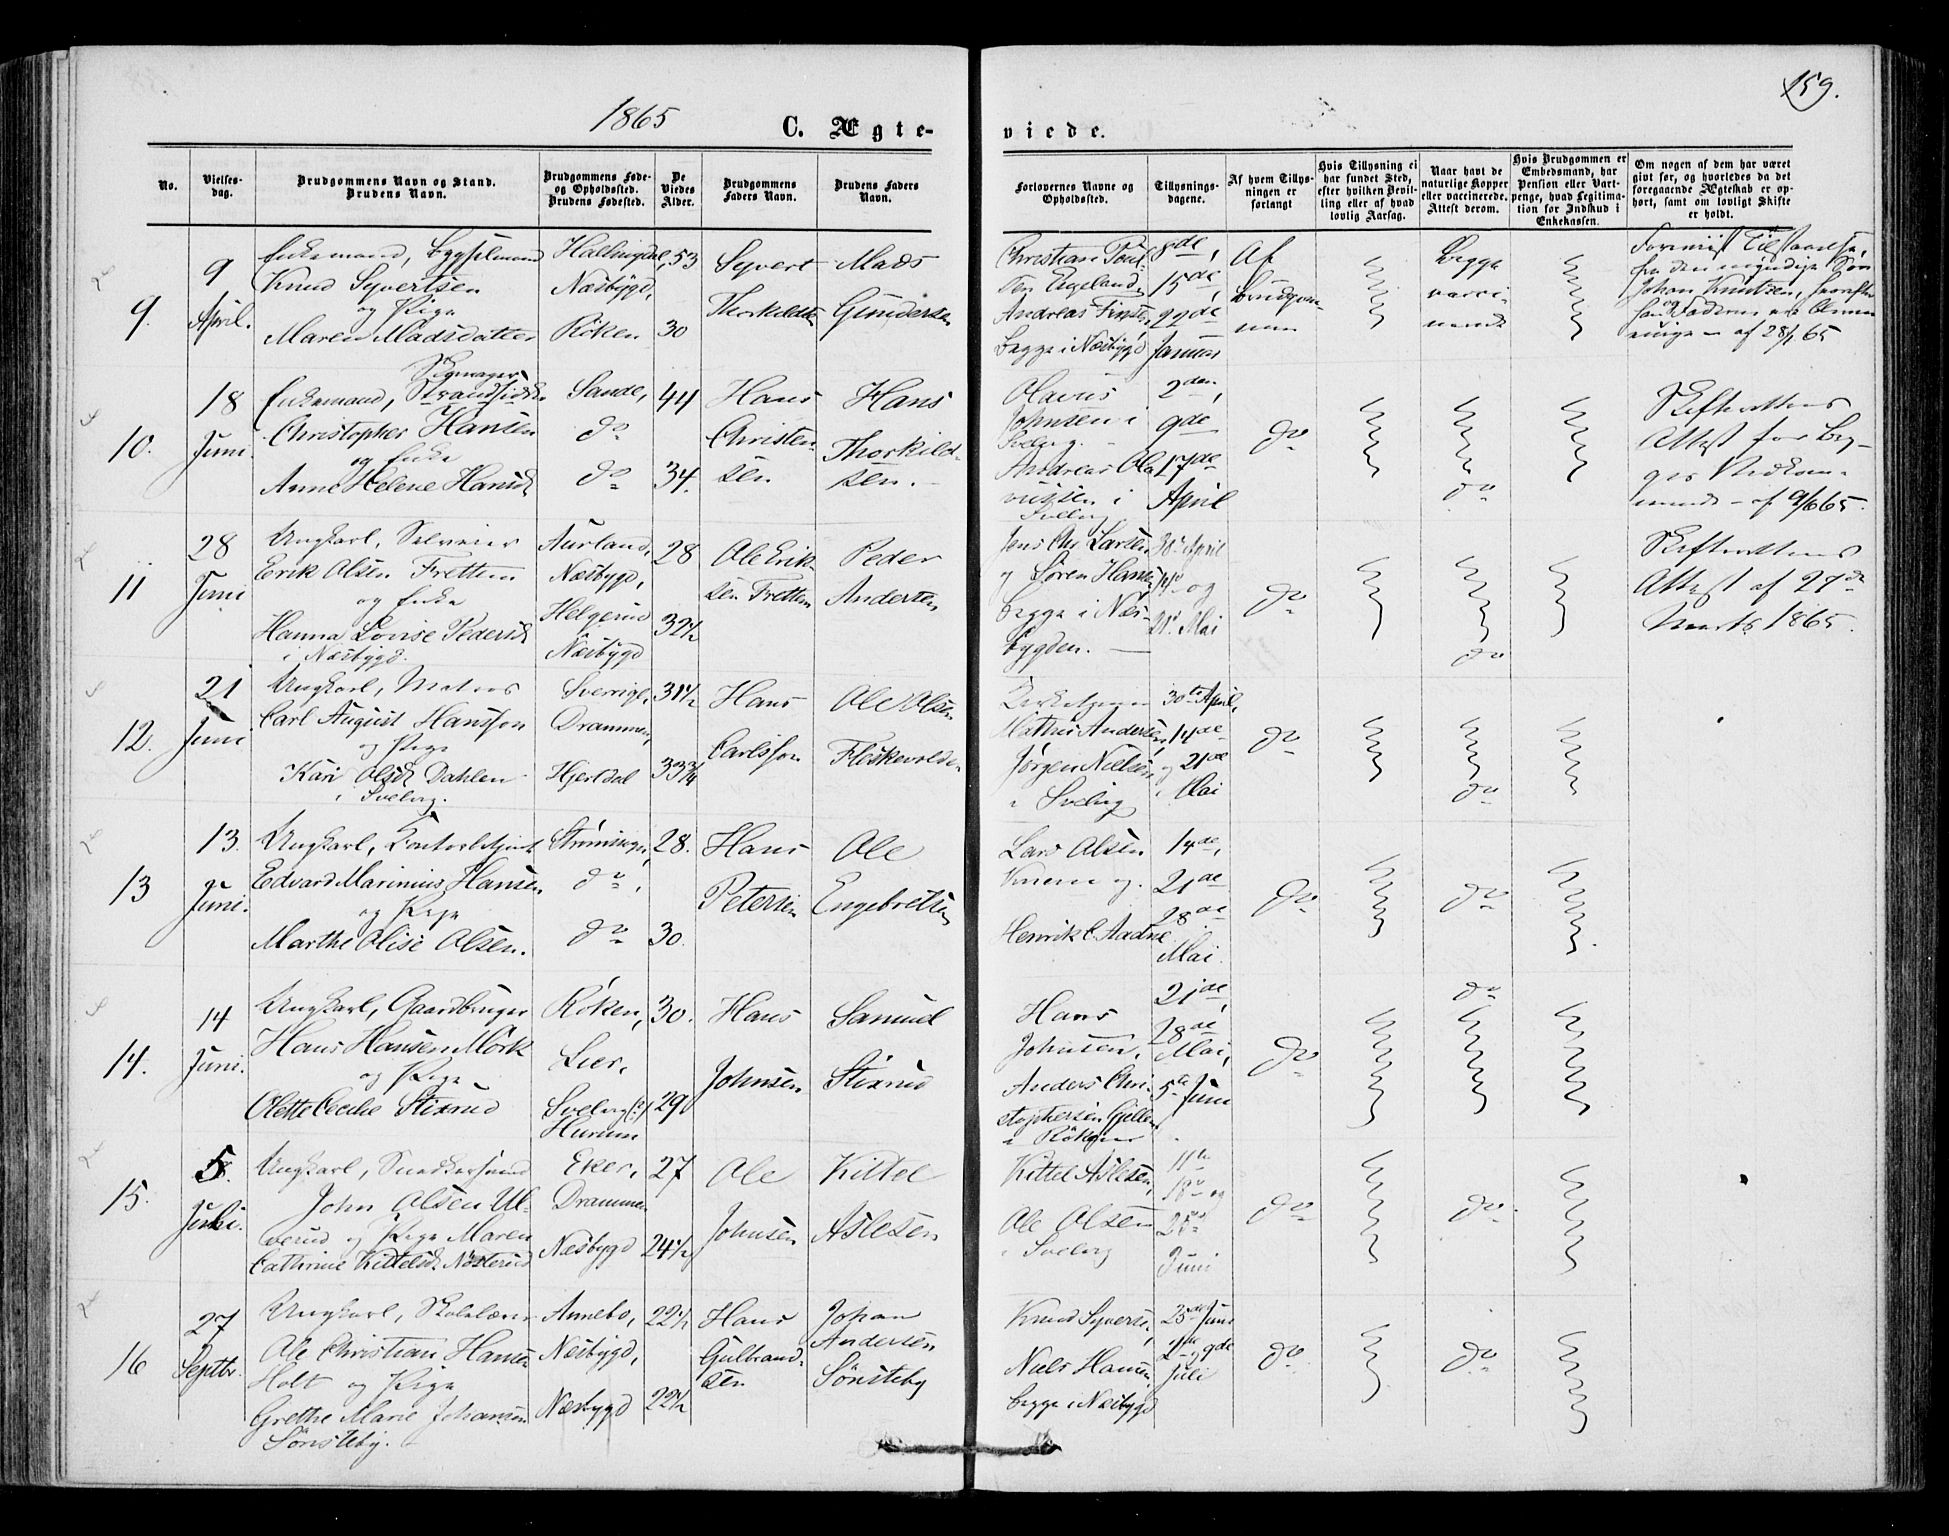 159.
1865
C. Ægte-
viede.
No.
Vielses-
dag.
Brudgommens Navn og Stand.
Brudens Navn.
Brudgommens Føde-
og Opholdssted.
Brudens Fødested.
De
Viedes
Alder.
Brudgommens
Faders Navn.
Brudens Faders
Navn.
Forlovernes Navne og
Opholdssted.
Tillysnings-
dagene.
Af hvem Tillys-
ningen er
forlangt
Hvis Tillysning ei
har fundet Sted,
efter hvilken Bevil-
ling eller af hvad
lovlig Aarsag.
Naar havt de
naturlige Kopper
eller vaccinerede.
Attest derom.
Hvis Brudgommen er
Embedsmand, har
Pension eller Vart-
penge, hvad Legitima-
tion for Indskud i
Enkekassen.
Om nogen af dem har været
gift før, og hvorledes da det
foregaaende Ægteskab er op-
hørt, samt om lovligt Skifte
er holdt.
9.
9
April.
Enkemand,
Knud Syvertsen
og Pige
Maren Madsdatter
Hallingdal,
Næsbygd,
Röken
53
30
Syvert
Thorkildsen
Mads
Gundersen
Christian Poul-
sen Engeland,
Andreas
begge i Næsbygd
8de,
15de,
22de
Januar
Af
Brudgom-
men
Begge
vacci-
nerede
Johan Knutsen,
af 28/1 65
10.
18
Juni
Enkemand, Strandsidder
Christopher Hansen
og Enke
Anne Helene Hansd.
Sande,
do
do
44
34.
Hans
Christen-
sen
Hans
Thorkild-
sen.
Olavus
Johnsen i
Svelvig.
Andreas Ola-
vussen i
Svelvig
2den,
9de
17de
April
do
do
Skifterettens
Attest for Beg-
ges Vedkom-
mende - af 9/6 65.
11
28
Juni
Ungkarl, Selveier
Erik Olsen Frettem
og Enke
Hanna Lovise Pedersd.
i Næsbygd.
Aurland,
Næsbygd,
Helgerud
Næsbygd
28
32½
Ole Erik-
sen Frettem
Peder
Andersen
Jens Chr. Larsen
og Sören Hansen
begge i Næs-
bygden.
30te April
14de og
21de Mai
do
do
Skifterettens
Attest af 27de
Marts 1865.
12.
21
Juni
Ungkarl, Matros
Carl August Hansson
og Pige
Kari Olsd. Dahlen
i Svelvig.
Sverrige,
Drammen,
Hjertdal
31½
33¾
Hans
Carlsson
Ole Olsen
Fleskevolden
Kirketjener
Mathis Andersen,
Jørgen Nielsen
i Svelvig
30te April,
14de
og 21de
Mai
do
do
13
13.
Juni.
Ungkarl, Kontorbetjent
Edvard Marinius Hansen
og Pige
Marthe Olise Olsen.
Strømsgo,
do,
do
28.
30.
Hans
Petersen
Ole
Engebretsen
Lars Olsen
og
Henrik C. Aadne
14de,
21de
28de
Mai.
do
do
14.
14
Juni.
Ungkarl, Gaardbruger
Hans Hansen Mörk
og Pige
Olette Cecilie Stixrud
Röken,
Lier,
Svelvig (?)
Hurum
30.
29
Hans
Johnsen
Samuel
Stixrud
Hans
Johnsen,
Anders Chri-
stophersen Gjellum
i Röken
21de,
28de
Mai,
5te Juni
do
do
15.
5.
Juli.
Ungkarl, Snedkersvend
John Olsen Ul-
verud og Pige Maren
Cathrine Kittelsd. Nösterud
Eker,
Drammen
Næsbygd
27
24½
Ole
Johnsen
Kittel
Aslesen
Kittel Aslesen,
Ole Olsen
i Svelvig
11te
18de og
25de
Juni
do
do
16
27
Septbr.
Ungkarl, Skolelærer
Ole Christian Hansen
Holt og Pige
Grethe Marie Johansen
Sönsteby.
Annebo,
Næsbygd,
Næsbygd
22½
22½
Hans
Gulbrand-
sen
Johan
Andersen
Sönsteby
Knud Syvertsen,
Niels Hansen,
begge i Næsbygd
25de Juni
2den og 9de
Juli
do
do